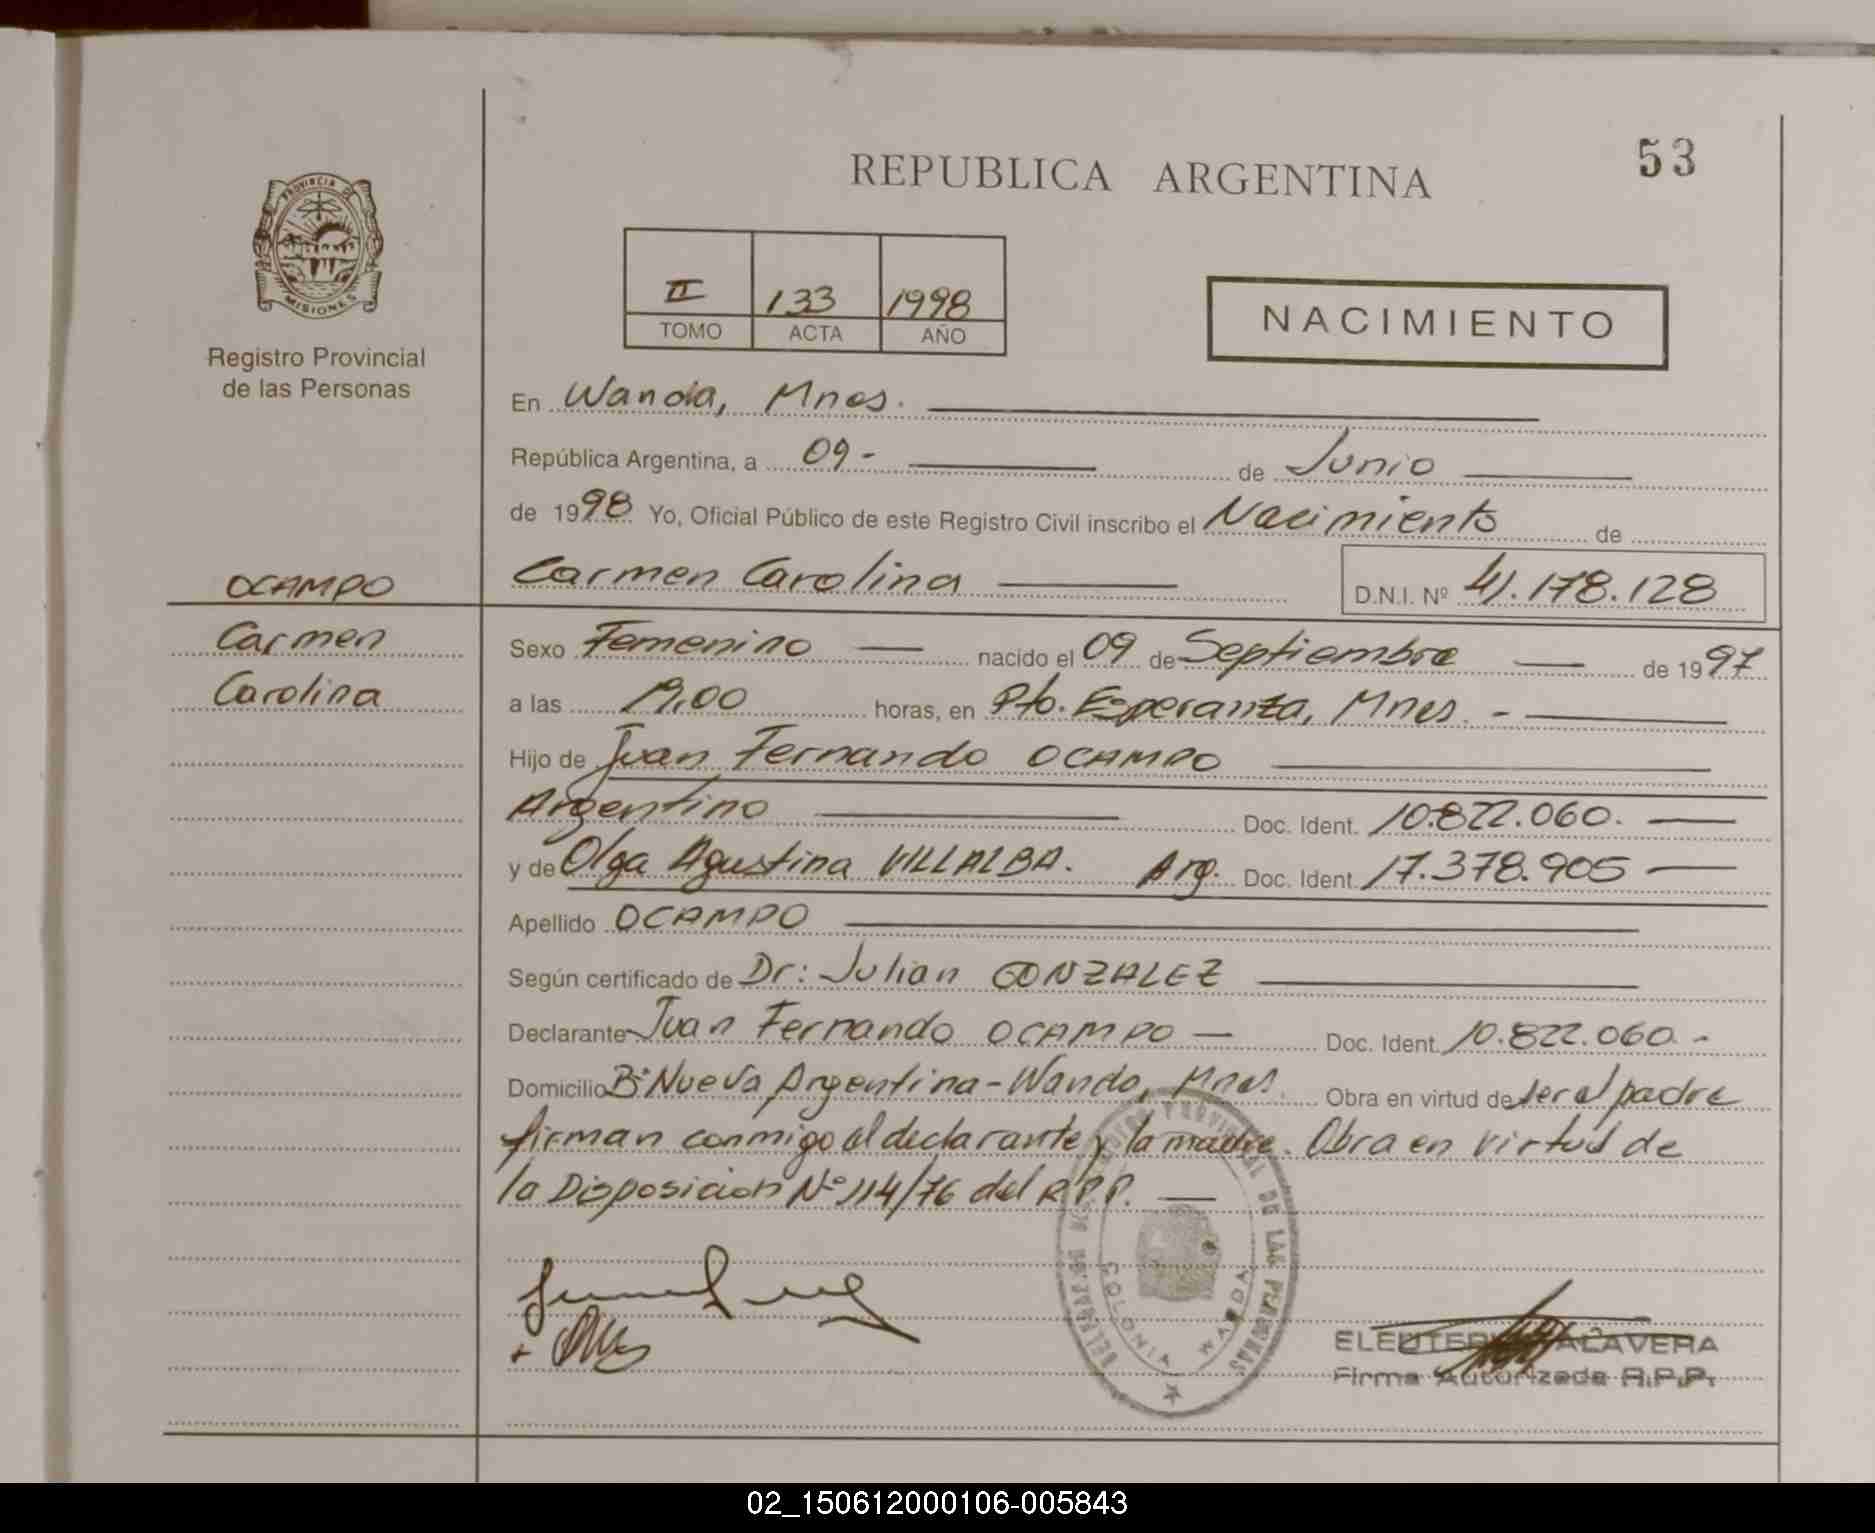 REPUBLICA ARGENTINA
53
PROVINCIA DE
MISIONES
Registro Provincial
de las Personas
II 133 1998
TOMO ACTA AÑO
NACIMIENTO
En Wanda, Mnes.
República Argentina, a 09- de Junio
de 1998 Yo, Oficial Público de este Registro Civil inscribo el Nacimiento de
OCAMPO
Carmen
Carolina
Carmen Carolina D.N.I. Nº 41.178.128
Sexo Femenino nacido el 09 de Septiembre de 1997
a las 19,00 horas, en Pto. Esperanza, Mnes. -
Hijo de Juan Fernando OCAMPO
Argentino Doc. Ident. 10.822.060.
y de Olga Agustina VILLALBA. Arg. Doc. Ident. 17.378.905
Apellido OCAMPO
Según certificado de Dr: Julian GONZALEZ
Declarante Juan Fernando OCAMPO Doc. Ident. 10.822.060.-
Domicilio Bº Nueva Argentina-Wanda, Mnes. Obra en virtud de ser el padre
firman conmigo el declarante y la madre. Obra en virtud de
la Disposicion Nº 114/76 del R.P.P.
PROVINCIAL DE LAS PERSONAS
COLONIA WANDA
ALAVERA
Firma Autorizada R.P.P.
02_150612000106-005843